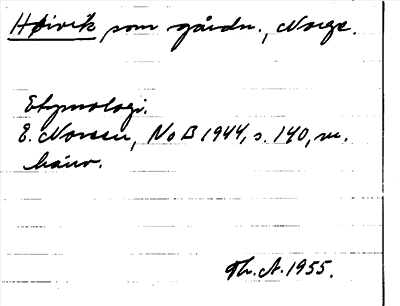 Høivik som gårdn., Norge.
Etymologi.
E. Noreen, NoB 1944, s. 140, m.
hänv.
Th. A. 1955.